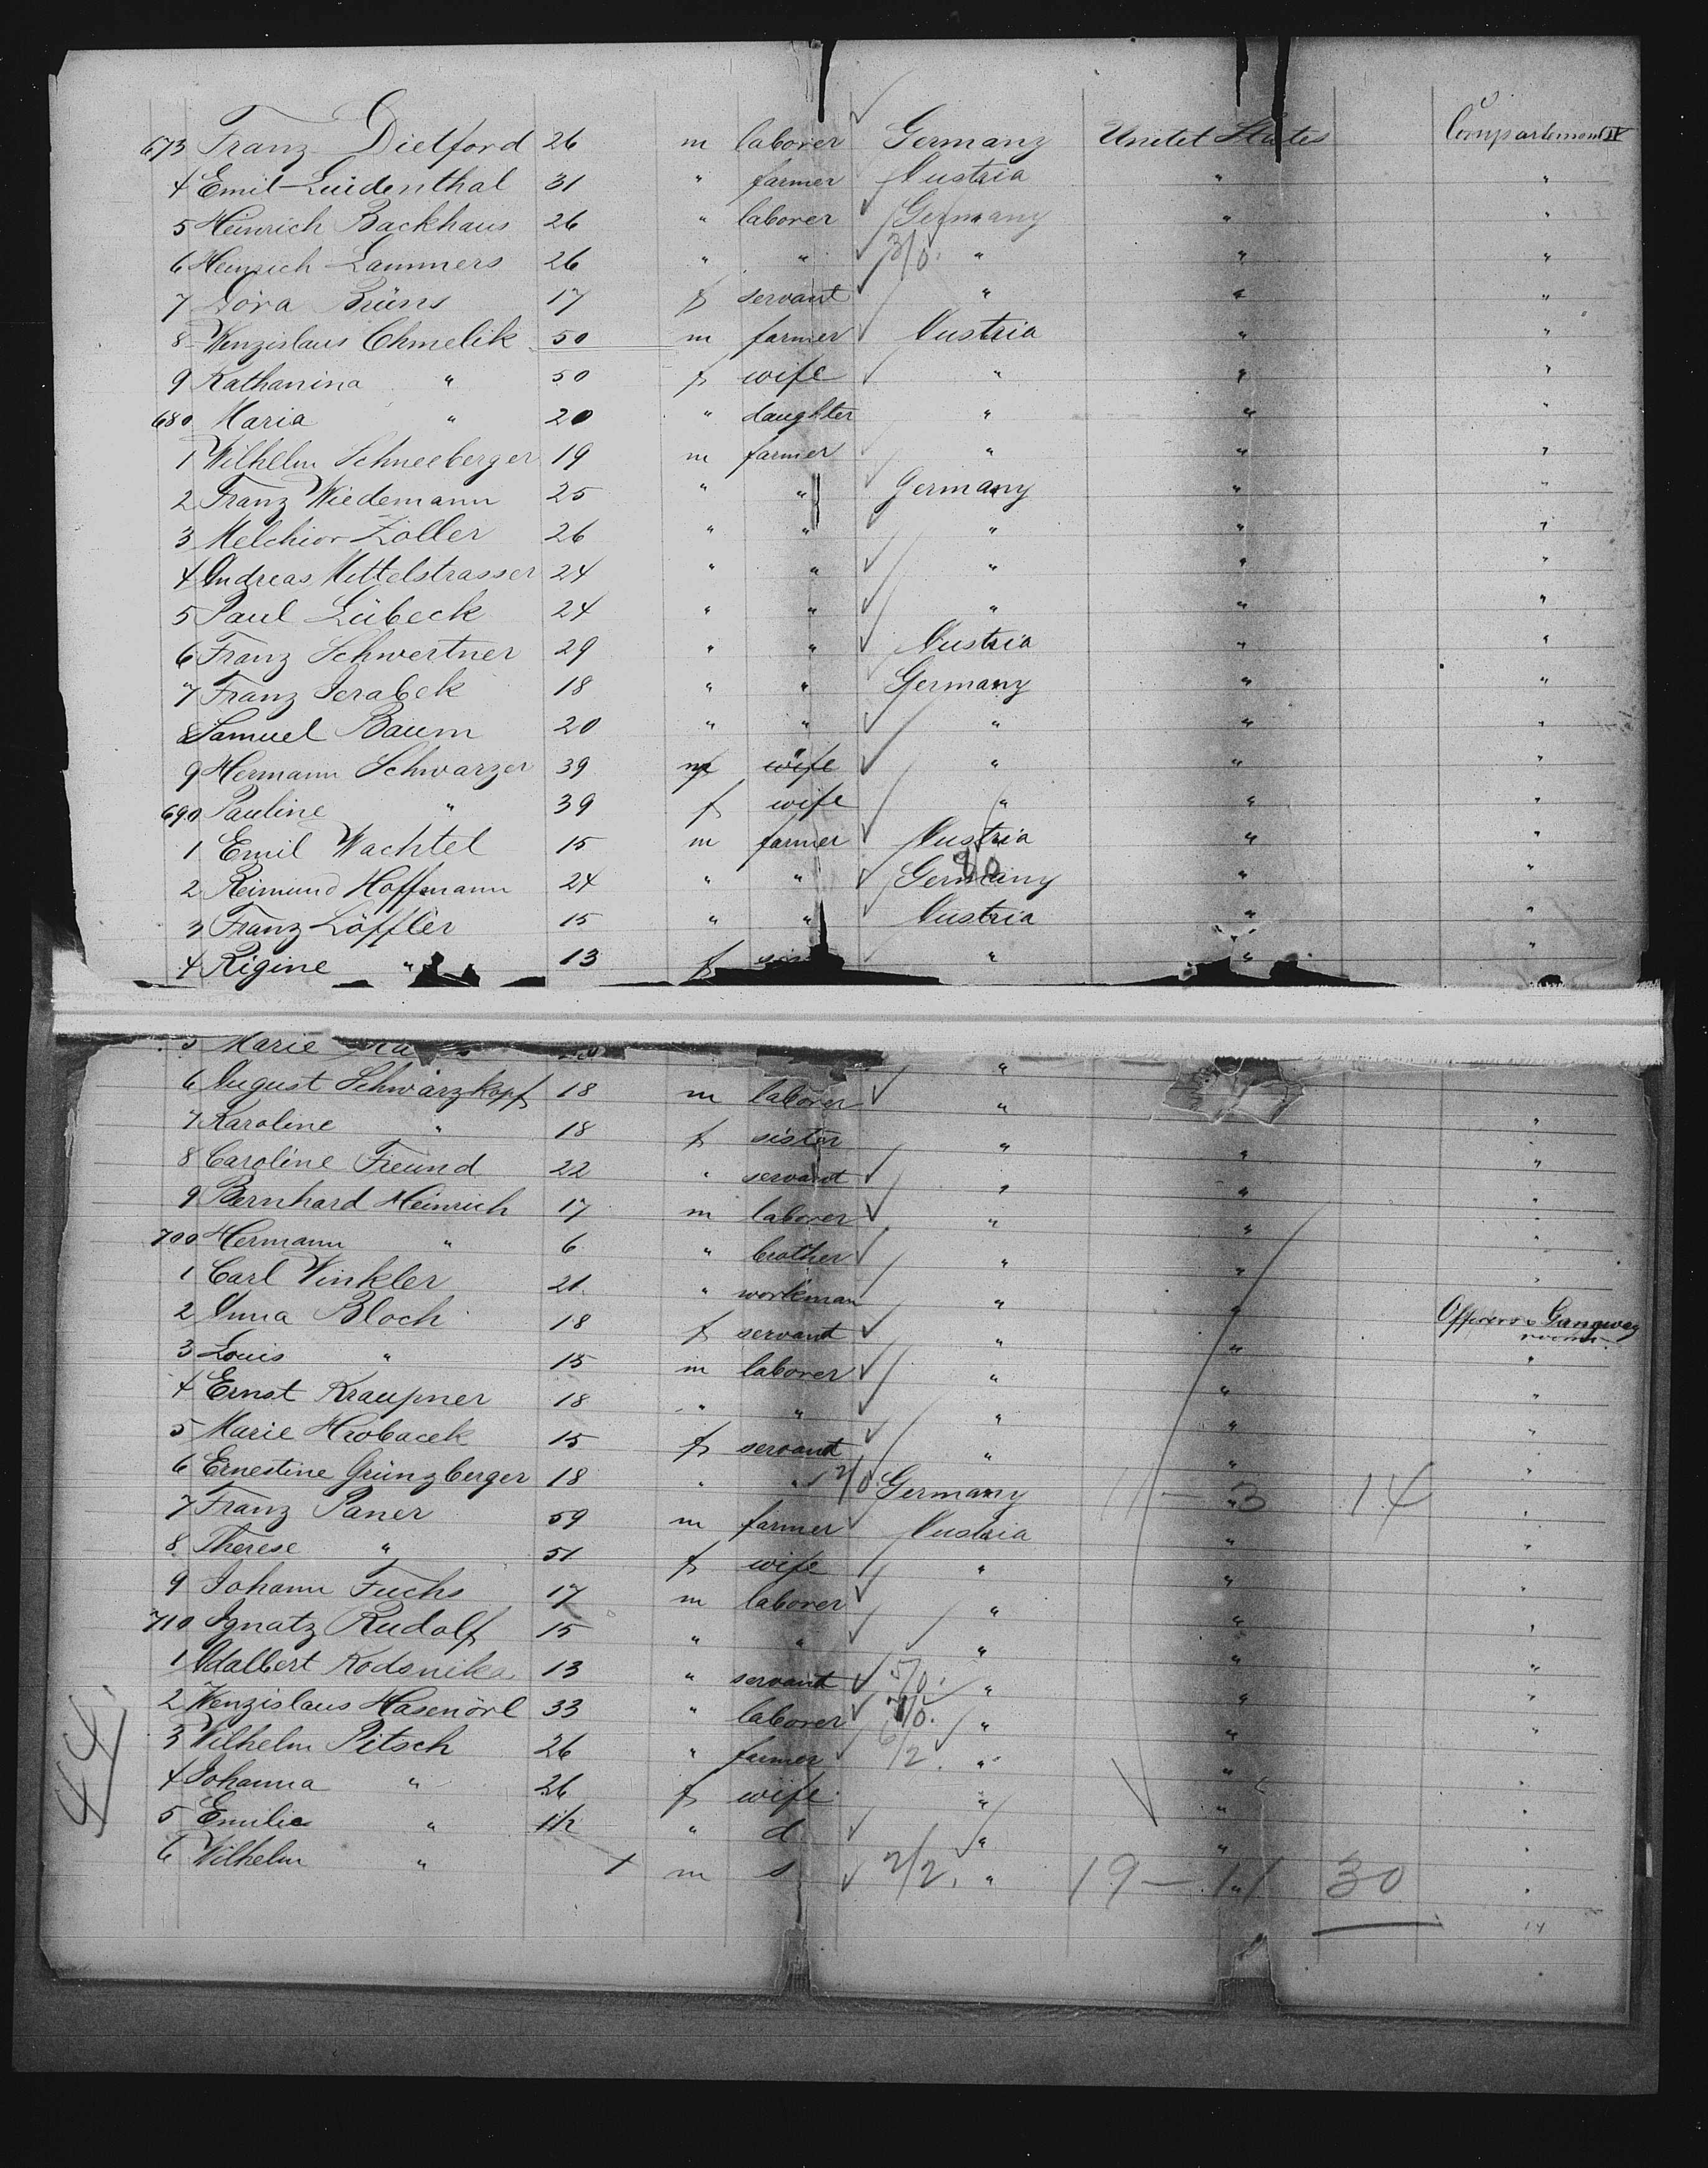 673 Franz Dietford 26 m laborer Germany Unitet States Compartement IV
4 Emil Luidenthal 31 " farmer Austria " "
5 Heinrich Backhaus 26 " laborer Germany " "
6 Heinrich Lammers 26 " " 3/0. " " "
7 Döra Brüns 17 f servant " " "
8 Wenzislaus Chmelik 50 m farmer Austria " "
9 Katharina " 50 f wife " " "
680 Maria " 20 " daughter " " "
1 Wilhelm Schneeberger 19 m farmer " " "
2 Franz Wiedemann 25 " " Germany " "
3 Melchior Zoller 26 " " " " "
4 Andreas Mittelstrasser 24 " " " " "
5 Paul Lübeck 24 " " " " "
6 Franz Schwertner 29 " " Austria " "
7 Franz Jerabek 18 " " Germany " "
8 Samuel Baum 20 " " " " "
9 Hermann Schwarzer 39 m wife " " "
690 Pauline " 39 f wife " " "
1 Emil Wachtel 15 m farmer Austria " "
2 Reimund Hoffmann 24 " " Germany " "
3 Franz Löffler 15 " " Austria " "
4 Rigine " 13 f " " "
5 Marie "
6 August Schwarzkopf 18 m laborer "
7 Karoline " 18 f sister " " "
8 Caroline Freund 22 " servant " " "
9 Bernhard Heinrich 17 m laborer " " "
700 Hermann " 6 " brother " " "
1 Carl Winkler 21 " workman " " "
2 Anna Bloch 18 f servant " " Officers & Gangway rooms
3 Louis " 15 m laborer " " "
4 Ernst Kraupner 18 " " " " "
5 Marie Hrobacek 15 f servant " " "
6 Ernestine Grünzberger 18 " " 2/0 Germany 11 — 3 14 "
7 Franz Paner 59 m farmer Austria " "
8 Therese " 51 f wife " " "
9 Johann Fuchs 17 m laborer " " "
710 Ignatz Rudolf 15 " " " " "
1 Adalbert Kodsnik 13 " servant 5/0. " " "
2 Wenzislaus Hasenörl 33 " laborer " " "
3 Wilhelm Pitsch 26 " farmer 6/2. " " "
4 Johanna " 26 f wife " " "
5 Emilie " " d " " "
6 Wilhelm " m s 2/2. " 19 — 11 30 "
14
44.